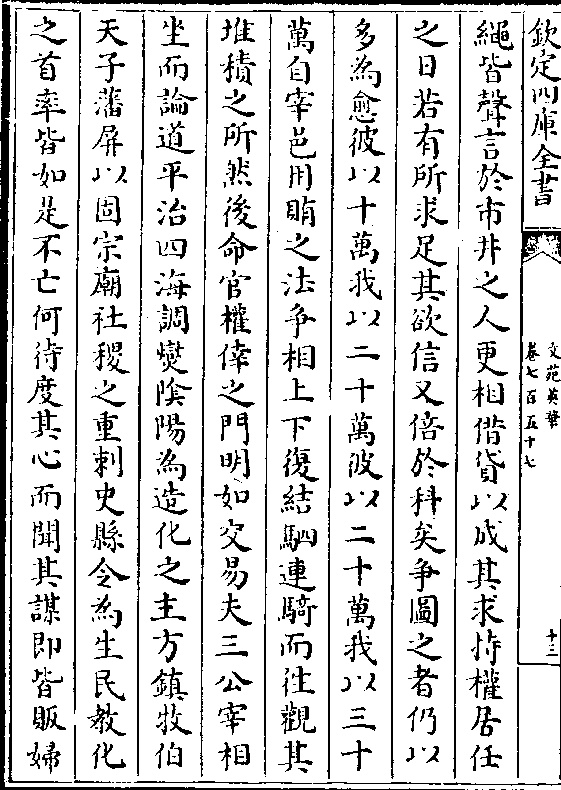 欽定四庫全書
文苑英華
卷七百五十七
十三
繩皆聲言於市井之人更相借貸以成其求持權居任
之日若有所求足其欲信又倍於科矣爭圖之者仍以
多為愈彼以十萬我以二十萬彼以二十萬我以三十
萬自宰邑用賄之法爭相上下復結駟連騎而往觀其
堆積之所然後命官權倖之門明如交易夫三公宰相
坐而論道平治四海調爕陰陽為造化之主方鎮牧伯
天子藩屏以固宗廟社稷之重刺史縣令為生民教化
之首率皆如是不亡何待度其心而聞其謀即皆販婦